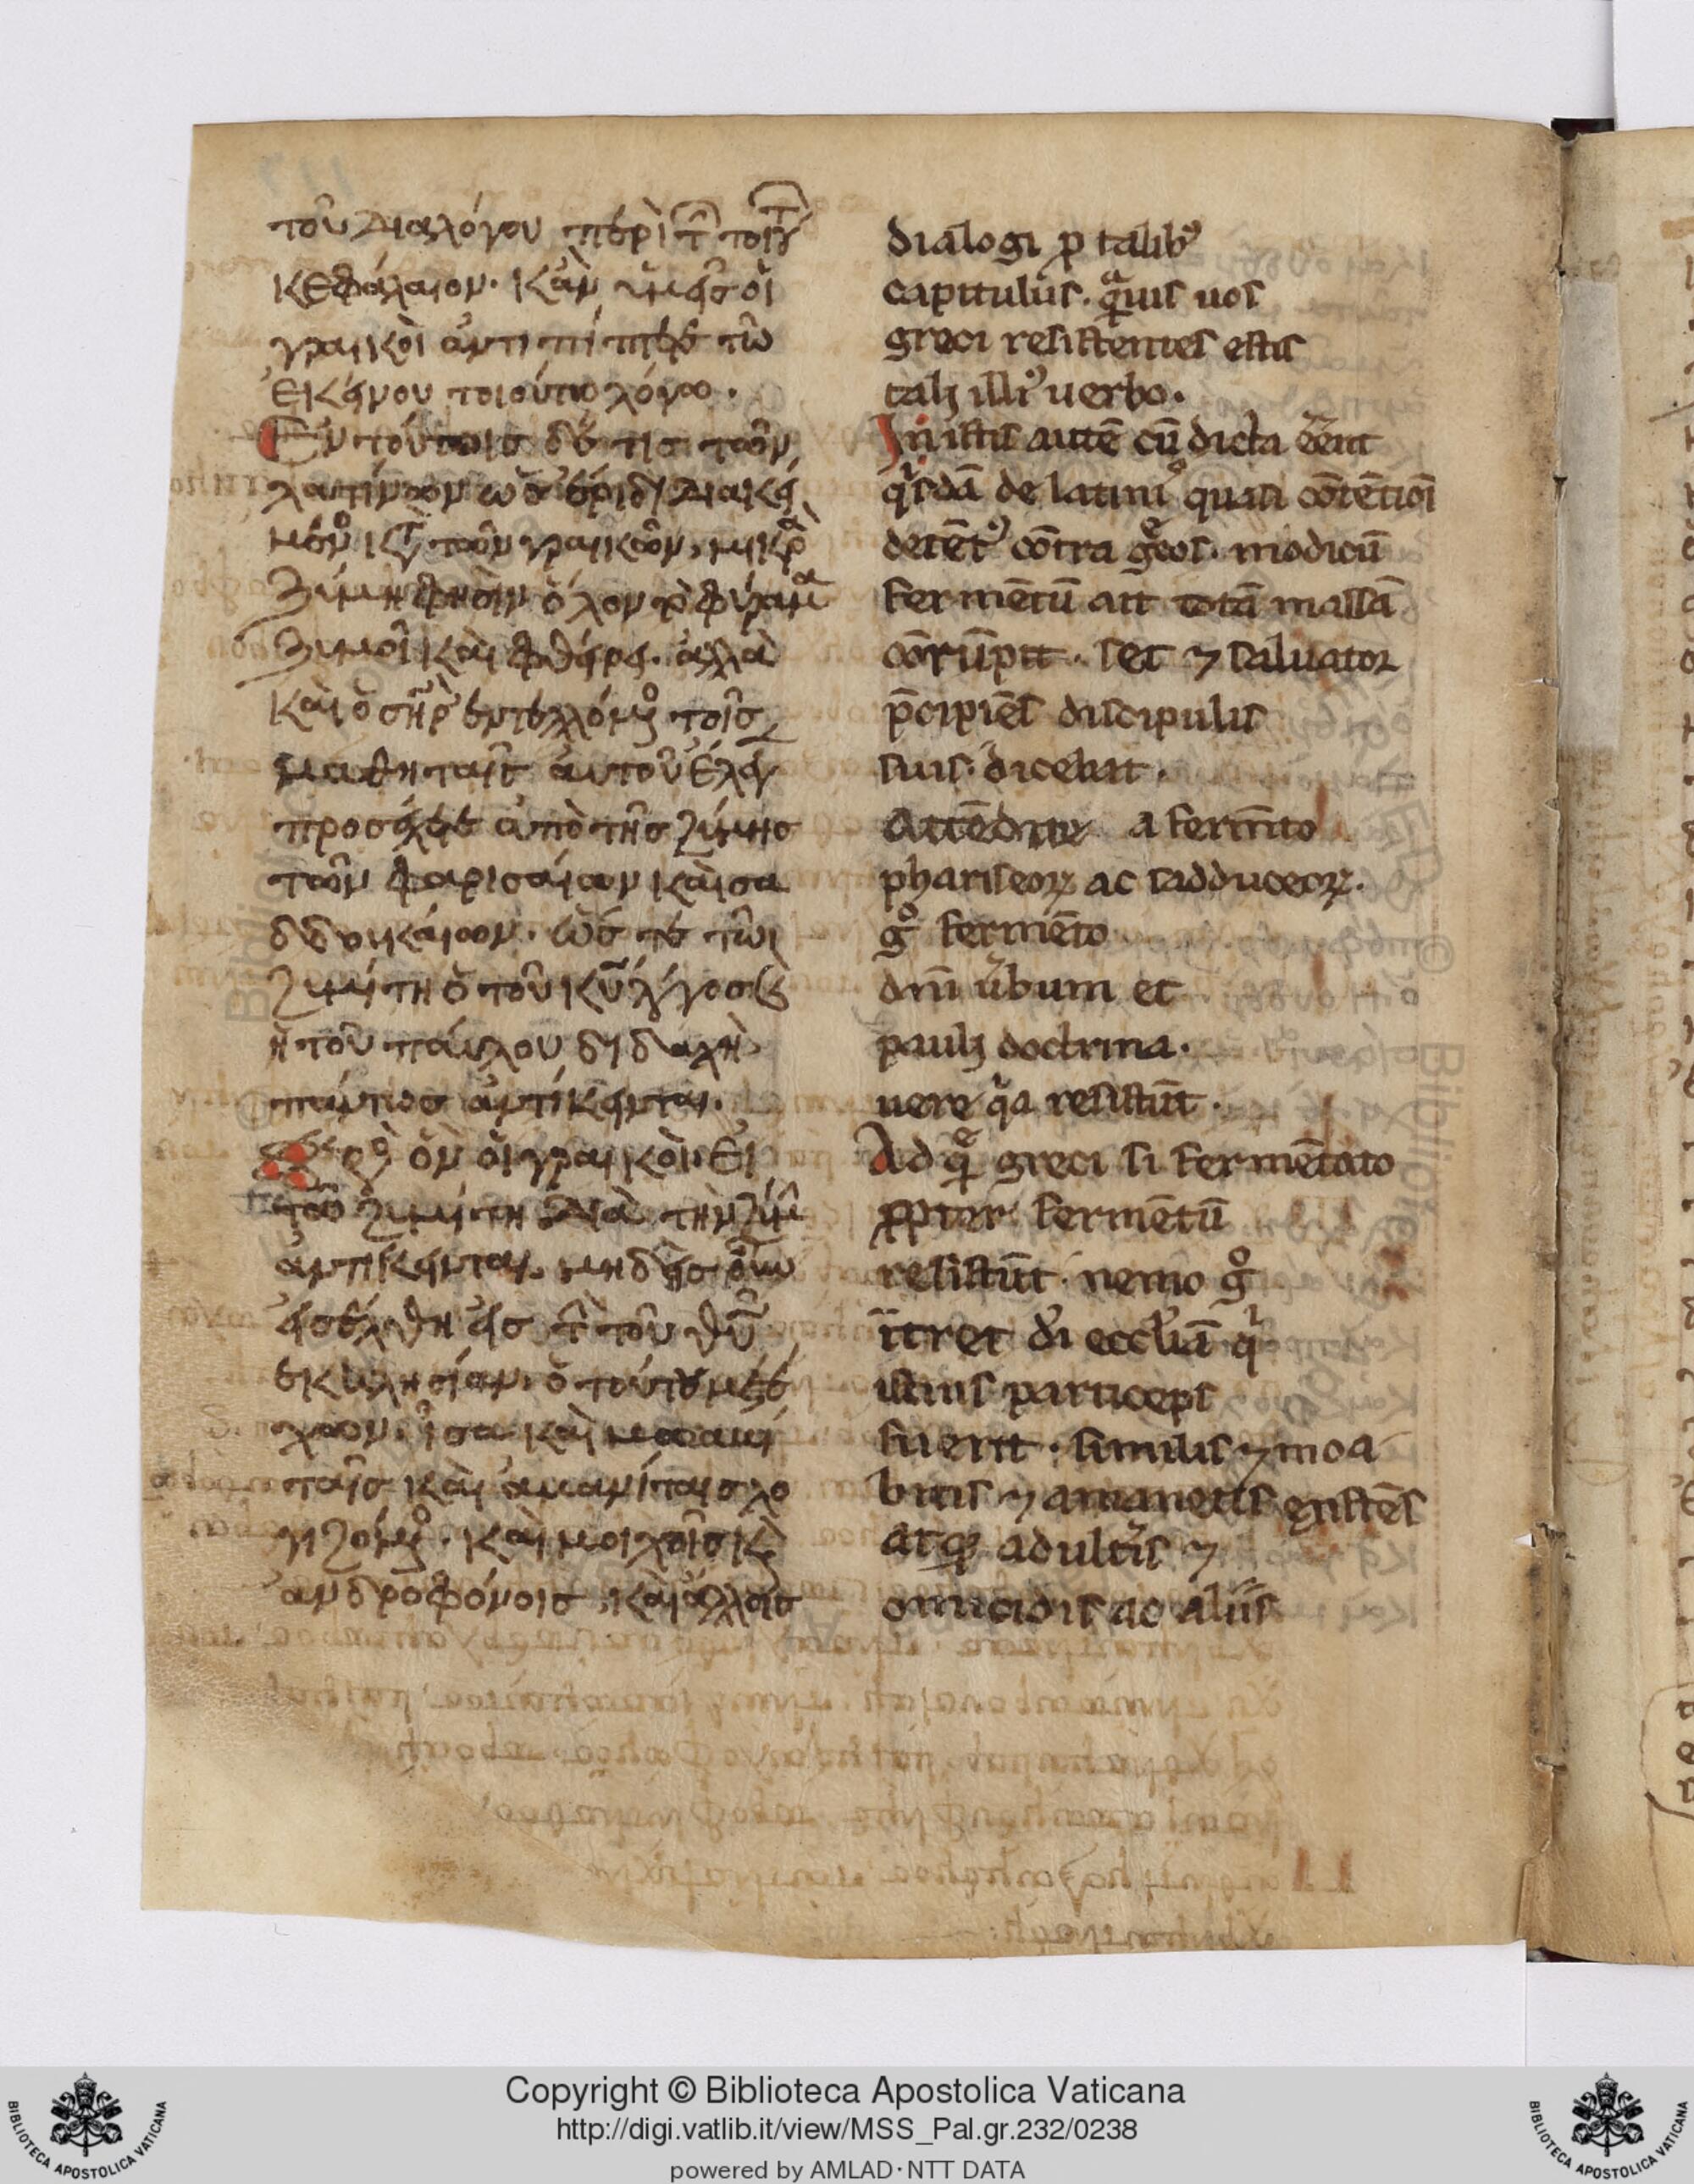 τοῦ διαλόγου περὶ τ τοιγ
κεφάλαιον· κἀν ὑμεῖς οἱ
γραικοὶ ἀντιπίπτετε τῶ
ἐκείνου τοιούτω λόγω·
Ἐν τούτοις δέ τις τῶν
λατίνων ὡς ἔριδι διακεί
μεν τῶν γραικῶν, μικρὰ
ζύμη φησὶν ὅλον τὸ φύραμα
ζυμοῖ καὶ φθείρει. ἀλλὰ
καὶ ὁ σηρ ἐντελλόμεν τοῖς
μαθηταῖς αὐτοῦ ἔλεγ
προσέχετε ἀπὸ τῆς ζύμης
τῶν φαρισαίων καὶ σα
δδουκαίων· ὥστε τῶι
ζυμίτη ὁ τοῦ κυ λόγος
ἡ τοῦ παύλου διδαχὴ
πάντως ἀντίκειται.
ὃν οἱ γραικοὶ· Εἰ
τῶ ζυμίτη διὰ τὴν ζύμ
ἀντίκειται, μηδεὶς οὖν
εἰσέλθη εἰς τ τοῦ θυ
ἐκκλησίαν, ὁ τούτου μετέ
χων, ἴσα καὶ μωαβί
ταις καὶ ἀμανίταις λο
γιζόμεν· καὶ μοιχοῖς κ
ἀνδροφόνοις, καὶ ἄλλοις
dialogi p talib9
capitulis. quis uos
greci resistentes estis
tali illi9 uerbo.
In istis autē cū dicta eēnt
qidā de latinis quasi cōtētiōi
detēt9 cōtra gcos. modicū
fermētū ait totā massā
cōrūpit. set ⁊ saluator
pcipiēs discipulis
suis. dicebat.
Attēdite a fermto
phariseoꝝ ac sadduceoꝝ.
go fermēto
dni ubum et
pauli doctrina.
uere qa resistūt.
Ad qe greci si fermētato
ppter fermētū
resistūt. nemo go
itret di eccliā qi
istius particeps
fuerit. similis ⁊ moa
bitis ⁊ amanetis existēs
atq adultis ⁊
omicidis ac aliis
Copyright © Biblioteca Apostolica Vaticana
http://digi.vatlib.it/view/MSS_Pal.gr.232/0238
powered by AMLAD·NTT DATA
BIBLIOTECA APOSTOLICA VATICANA
BIBLIOTECA APOSTOLICA VATICANA